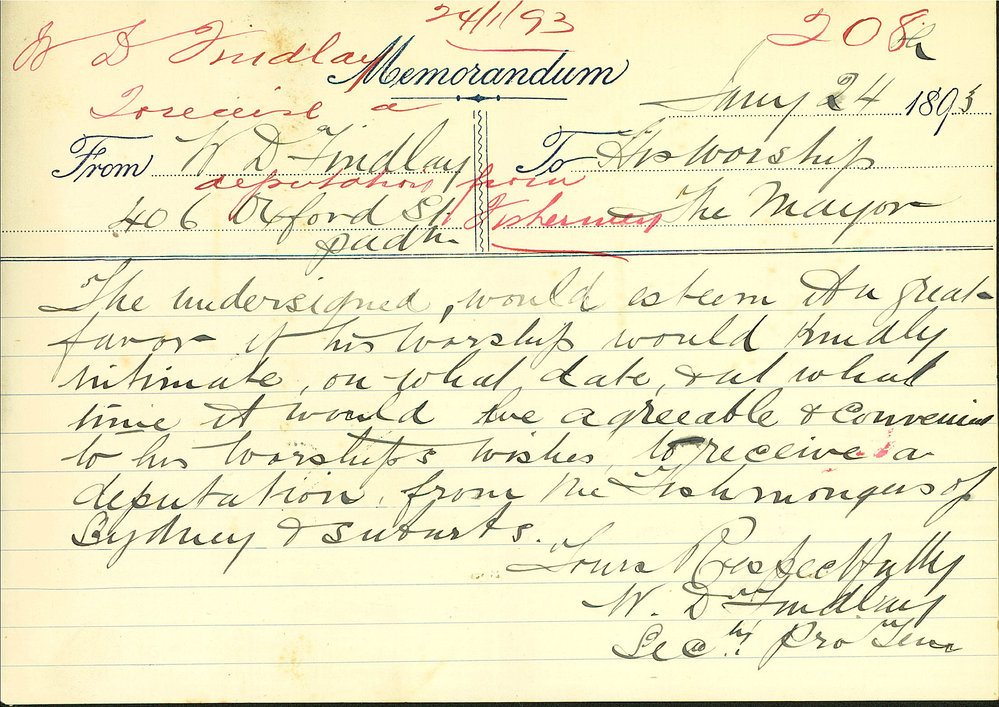 24/1/93
208
W D Findlay
Memorandum
To receive a
Jany 24 1893
From W D Findlay
To His Worship
deputation from
406 Oxford St
Fishermen
The Mayor
padtn
The undersigned, would esteem it a great
favor if his worship would kindly
intimate, on what date, & at what
time it would be agreeable & convenient
to his worships wishes, to receive a
deputation, from the Fishmongers of
Sydney & suburbs.
Yours Respectfully
W. D Findlay
Secty Pro Tem